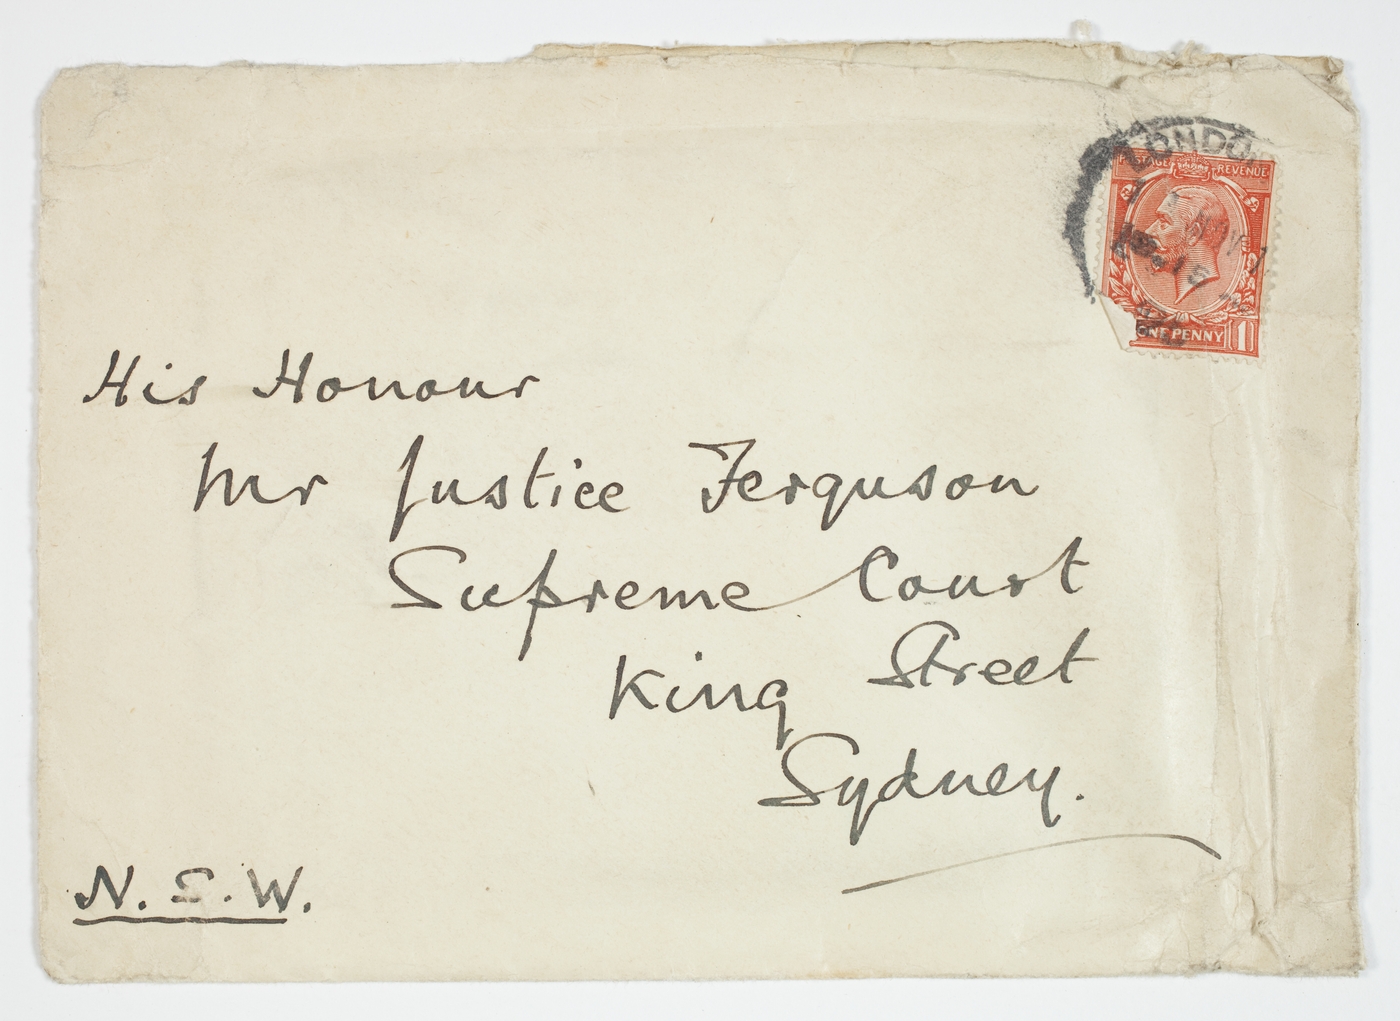 LONDON
POSTAGE REVENUE
ONE PENNY 1
His Honour
Mr Justice Ferguson
Supreme Court
King Street
Sydney.
N.S.W.